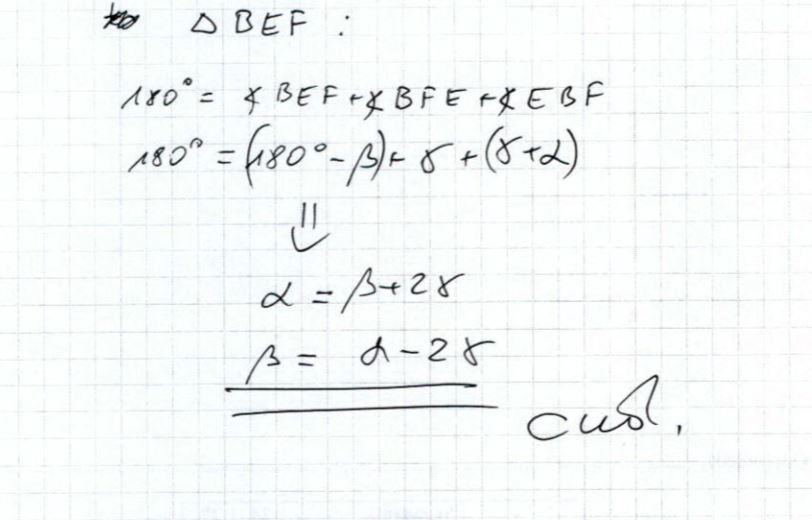 △ BEF :
180° = ∢BEF + ∢BFE + ∢EBF
180° = (180° - β) + γ + (γ + α)
⇓
α = β + 2γ
β = α - 2γ
cnd.